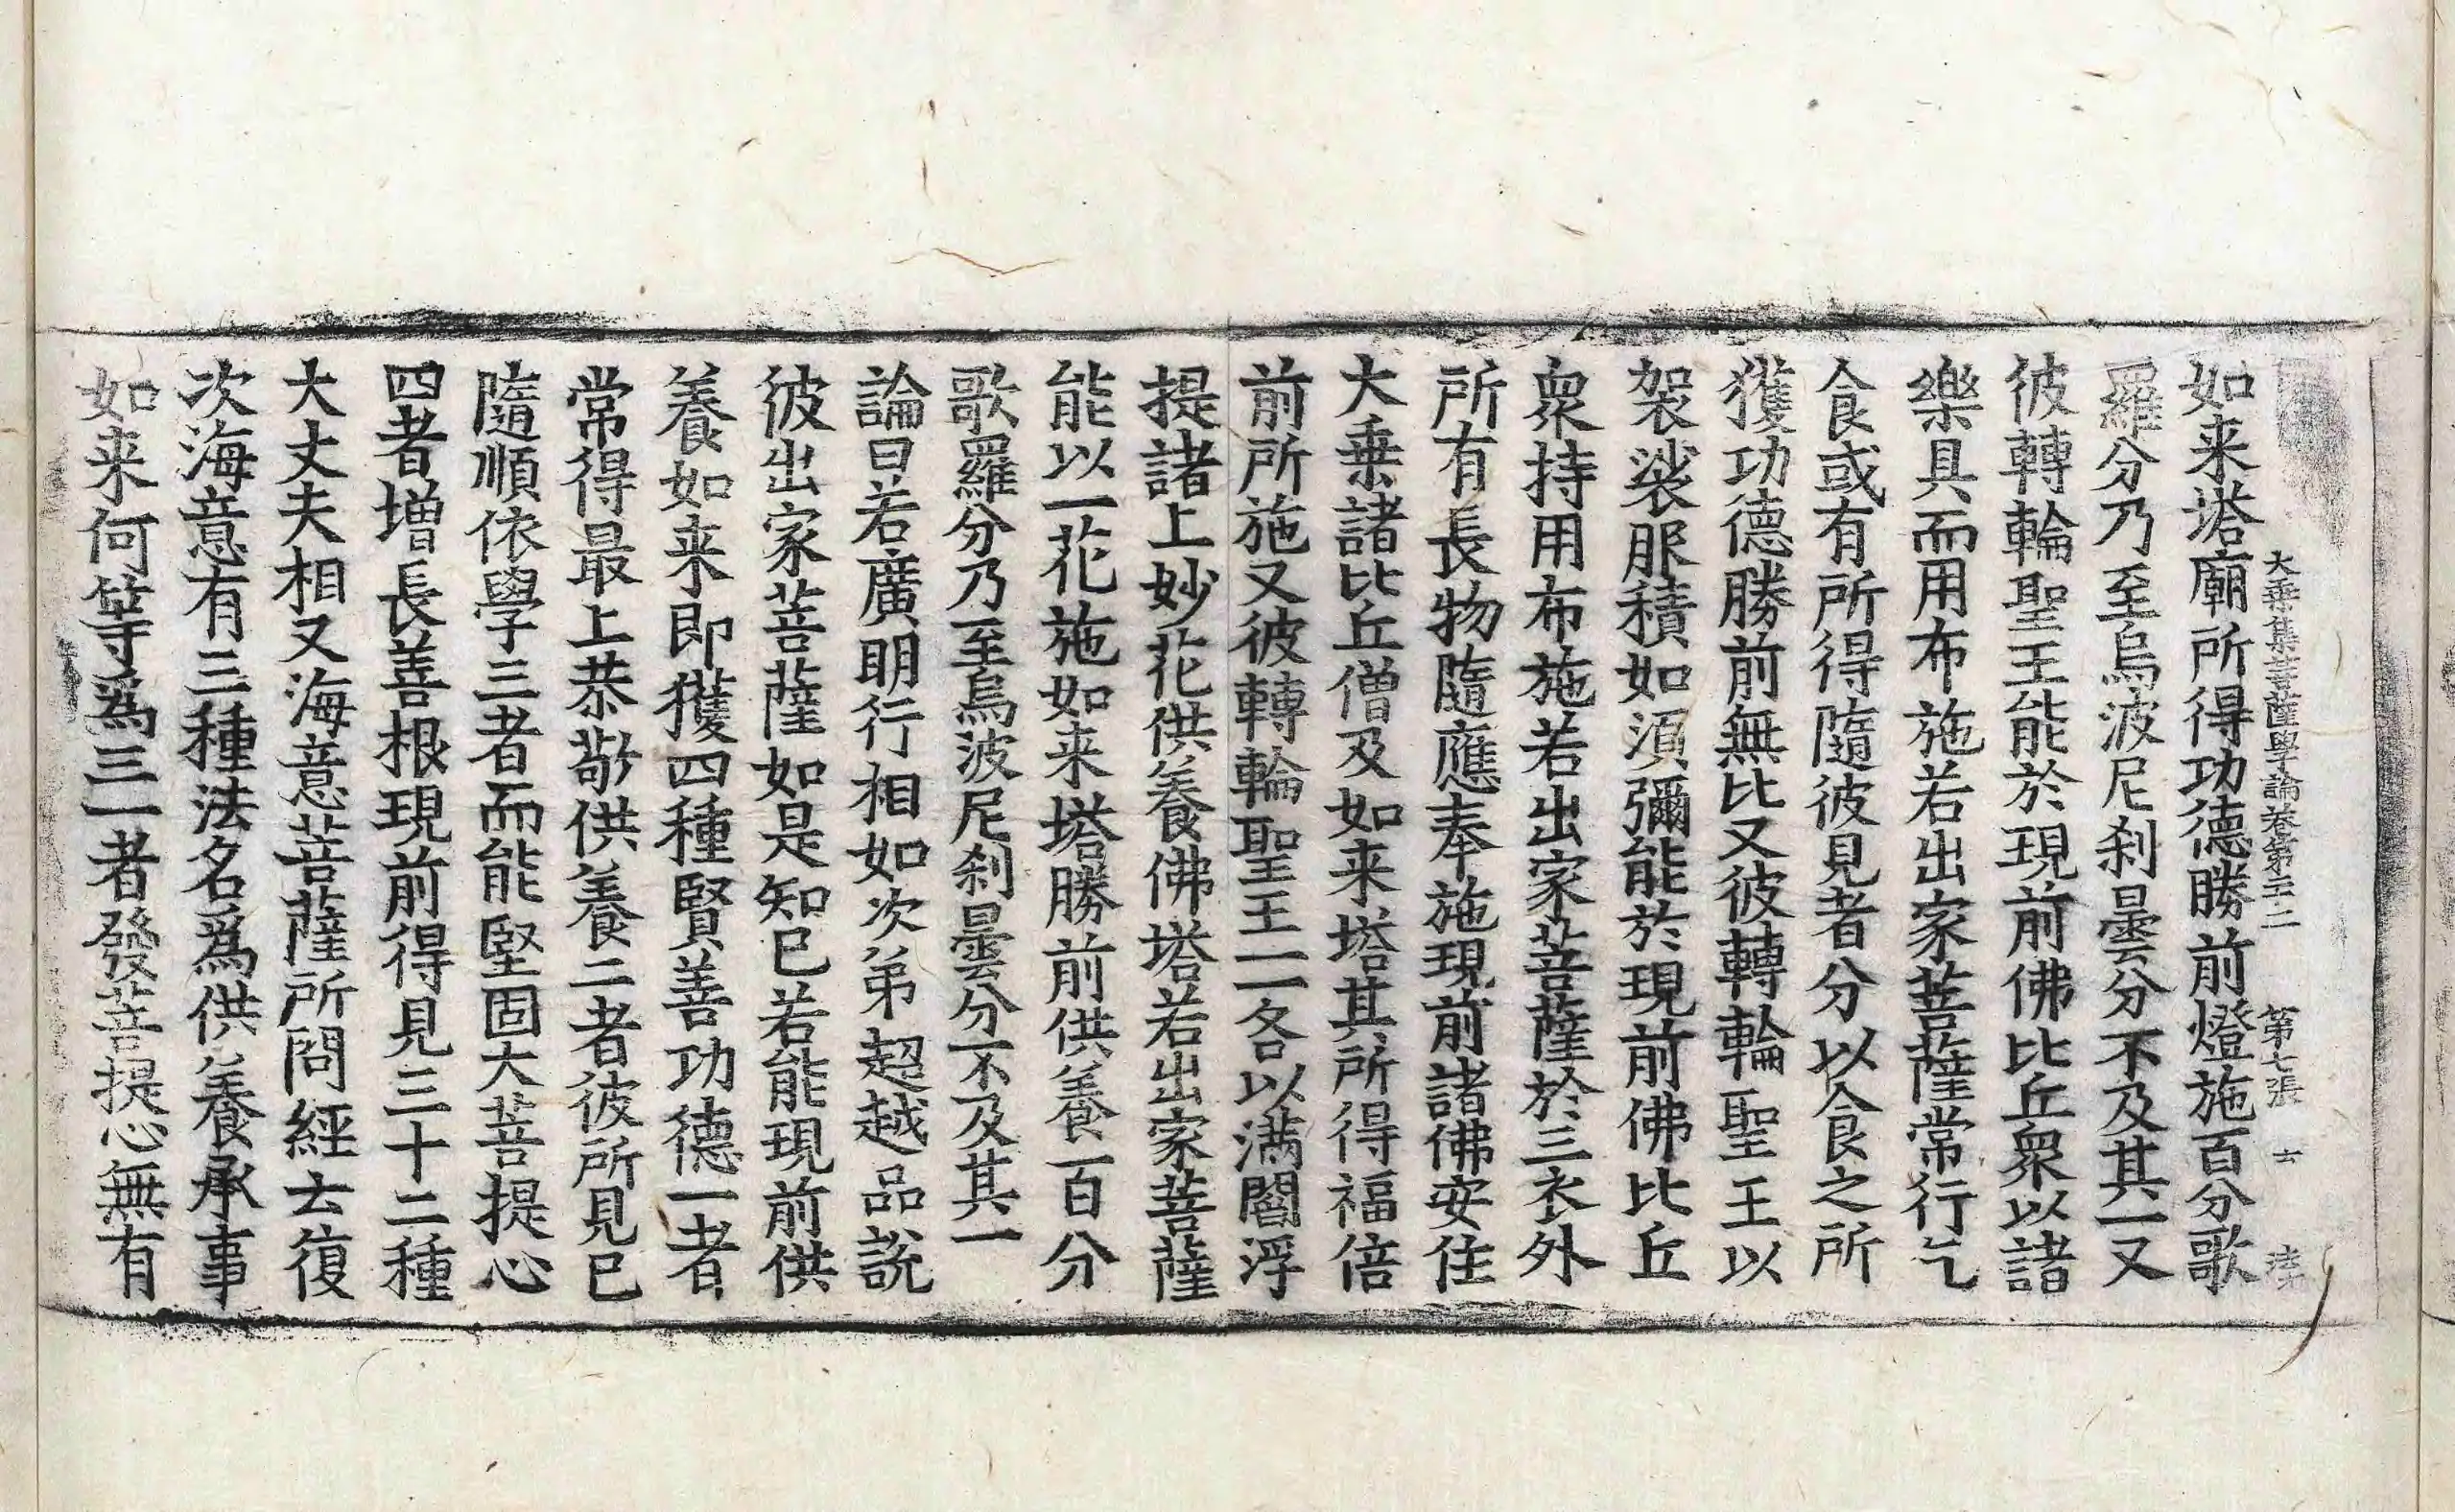 大乗集菩薩學論卷第二十二 第七張 士
如来塔廟所得功德勝前燈施百分歌
羅分乃至烏波尼刹曇分不及其一又
彼轉輪聖王能於現前佛比丘衆以諸
樂具而用布施若出家菩薩常行乞
食或有所得隨彼見者分以食之所
獲功德勝前無比又彼轉輪聖王以
袈裟服積如湏彌能於現前佛比丘
衆持用布施若出家菩薩於三衣外
所有長物隨應奉施現前諸佛安住
大乗諸比丘僧及如来塔其所得福倍
前所施又彼轉輪聖王一一各以滿閻浮
提諸上妙花供養佛塔若出家菩薩
能以一花施如来塔勝前供養百分
歌羅分乃至烏波尼刹曇分不及其一
論曰若廣明行相如次第超越品說
彼出家菩薩如是知已若能現前供
養如来即獲四種賢善功德一者
常得最上恭敬供養二者彼所見已
隨順依學三者而能堅固大菩提心
四者增長善根現前得見三十二種
大丈夫相又海意菩薩所問經云復
次海意有三種法名爲供養承事
如来何等爲三一者發菩提心無有